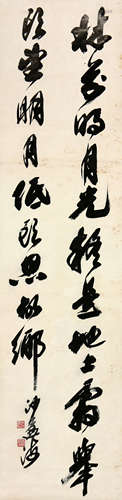 牀前明月光疑是地上霜舉
頭望明月低頭思故鄉
沙孟海